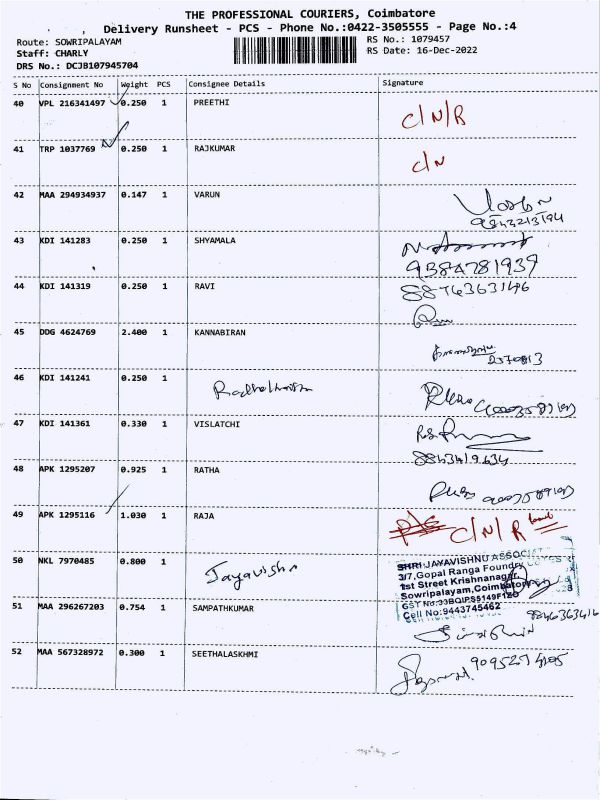 THE PROFESSIONAL COURIERS, Coimbatore
Delivery Runsheet - PCS - Phone No.:0422-3505555 - Page No.:4
Route: SOWRIPALAYAM RS No.: 1079457
Staff: CHARLY RS Date: 16-Dec-2022
DRS No.: DCJB107945704
S No Consignment No Weight PCS Consignee Details Signature
40 VPL 216341497 0.250 1 PREETHI C/N/R
41 TRP 1037769 0.250 1 RAJKUMAR C/N
42 MAA 294934937 0.147 1 VARUN
9843213194
43 KDI 141283 0.250 1 SHYAMALA
9384781939
44 KDI 141319 0.250 1 RAVI
45 DDG 4624769 2.400 1 KANNABIRAN
46 KDI 141241 0.250 1
47 KDI 141361 0.330 1 VISLATCHI
8843419634
48 APK 1295207 0.925 1 RATHA
49 APK 1295116 1.030 1 RAJA C/N/R
50 NKL 7970485 0.800 1 Jayavishnu
SHRI JAYAVISHNU ASSOCIATES
3/7,Gopal Ranga Foundry
1st Street Krishnanagar,
Sowripalayam,Coimbatore
GST No:33BQIPS5149F1ZO
Cell No:9443745462
51 MAA 296267203 0.754 1 SAMPATHKUMAR
52 MAA 567328972 0.300 1 SEETHALASKHMI